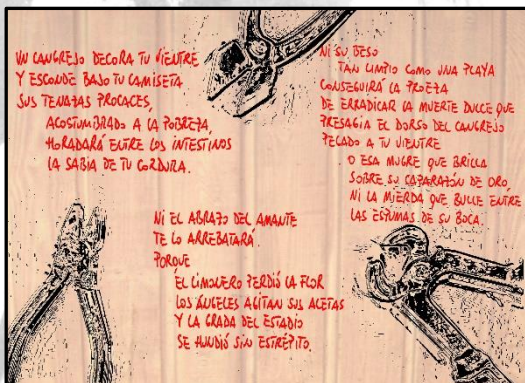 UN CANGREJO DECORA TU VIENTRE
Y ESCONDE BAJO TU CAMISETA
SUS TENAZAS PROCACES,
ACOSTUMBRADO A LA POBREZA
HORADARÁ ENTRE LOS INTESTINOS
LA SABIA DE TU CORDURA.
NI EL ABRAZO DEL AMANTE
TE LO ARREBATARÁ
PORQUE
EL LIMONERO PERDIÓ LA FLOR
LOS ÁNGELES AGITAN SUS ALETAS
Y LA GRADA DEL ESTADIO
SE HUNDIÓ SIN ESTRÉPITO.
NI SU BESO
TAN LIMPIO COMO UNA PLAYA
CONSEGUIRÁ LA PROEZA
DE ERRADICAR LA MUERTE DULCE QUE
PRESAGIA EL DORSO DEL CANGREJO
PEGADO A TU VIENTRE
O ESA MUGRE QUE BRILLA
SOBRE SU CAPARAZÓN DE ORO,
NI LA MIERDA QUE BULLE ENTRE
LAS ESPUMAS DE SU BOCA.